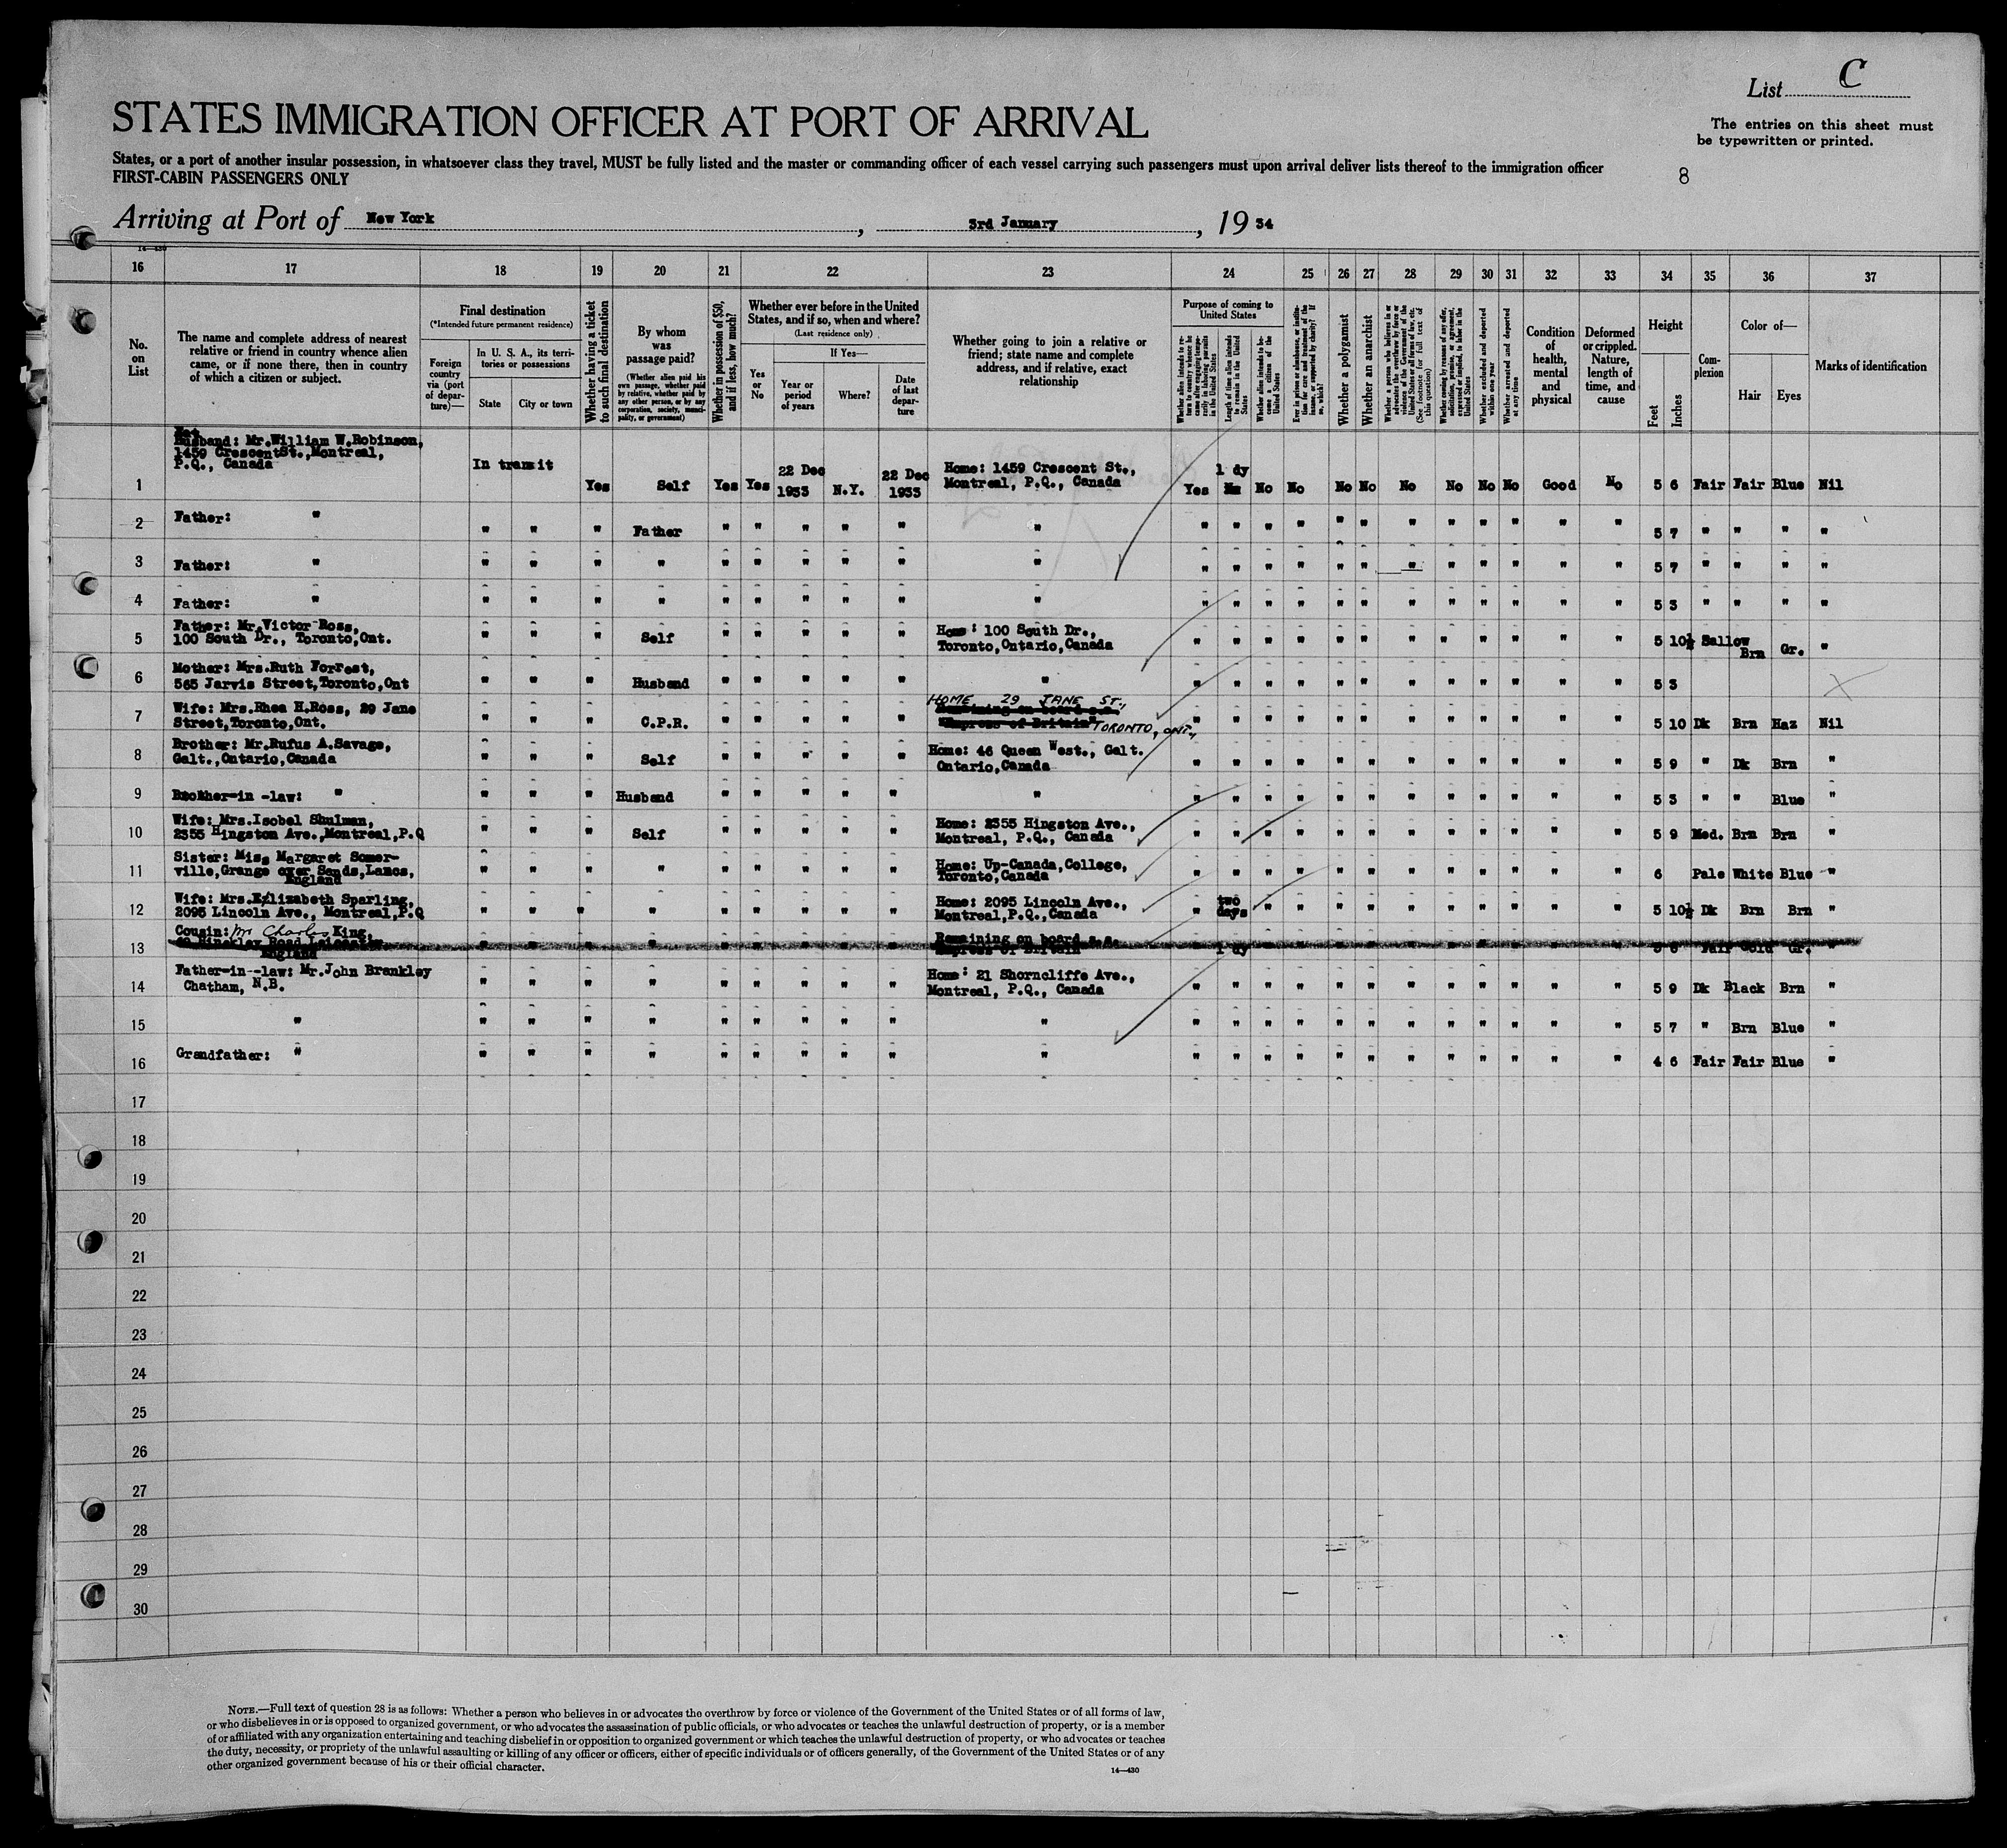 List C
STATES IMMIGRATION OFFICER AT PORT OF ARRIVAL
The entries on this sheet must
be typewritten or printed.
States, or a port of another insular possession, in whatsoever class they travel, MUST be fully listed and the master or commanding officer of each vessel carrying such passengers must upon arrival deliver lists thereof to the immigration officer
FIRST-CABIN PASSENGERS ONLY
8
Arriving at Port of New York, 3rd January, 1934
14—430
16 17 18 19 20 21 22 23 24 25 26 27 28 29 30 31 32 33 34 35 36 37
No. on List
The name and complete address of nearest
relative or friend in country whence alien
came, or if none there, then in country
of which a citizen or subject.
Final destination
(*Intended future permanent residence)
Foreign country via (port of departure)—
In U. S. A., its territories or possessions
State
City or town
Whether having a ticket to such final destination
By whom was passage paid?
(Whether alien paid his own passage, whether paid by relative, whether paid by any other person, or by any corporation, society, municipality, or government)
Whether in possession of $50, and if less, how much?
Whether ever before in the United States, and if so, when and where?
(Last residence only)
Yes or No
If Yes—
Year or period of years
Where?
Date of last departure
Whether going to join a relative or
friend; state name and complete
address, and if relative, exact
relationship
Purpose of coming to United States
Whether alien intends to return to country whence he came after engaging temporarily in laboring pursuits in the United States
Length of time alien intends to remain in the United States
Whether alien intends to become a citizen of the United States
Ever in prison or almshouse, or institution for care and treatment of the insane, or supported by charity? If so, which?
Whether a polygamist
Whether an anarchist
Whether a person who believes in or advocates the overthrow by force or violence of the Government of the United States or all forms of law, etc. (See footnote for full text of this question)
Whether coming by reason of any offer, solicitation, promise, or agreement, expressed or implied, to labor in the United States
Whether excluded and deported within one year
Whether arrested and deported at any time
Condition of health, mental and physical
Deformed or crippled. Nature, length of time, and cause
Height
Feet
Inches
Complexion
Color of—
Hair
Eyes
Marks of identification
Husband: Mr.William W.Robinson,
1459 CrescentSt.,Montreal,
P.Q., Canada
1 In transit Yes Self Yes Yes 22 Dec 1933 N.Y. 22 Dec 1933 Home: 1459 Crescent St., Montreal, P.Q., Canada Yes 1 dy No No No No No No No No Good No 5 6 Fair Fair Blue Nil
2 Father: " " " " Father " " " " " " " " " " " " " " " " " " " 5 7 " " " "
3 Father: " " " " " " " " " " " " " " " " " " " " " " " " 5 7 " " " "
4 Father: " " " " " " " " " " " " " " " " " " " " " " " " 5 3 " " " "
Father: Mr.Victor Ross,
5 100 South Dr., Toronto,Ont. " " " Self " " " " " Home: 100 South Dr., Toronto,Ontario,Canada " " " " " " " " " " " " 5 10½ Sallow Brn Gr. "
Mother: Mrs.Ruth Forrest,
6 565 Jarvis Street,Toronto,Ont " " " Husband " " " " " " " " " " " " " " " " " " 5 3
Wife: Mrs.Rhea H.Ross, 29 Jane
7 Street,Toronto,Ont. " " " C.P.R. " " " " " HOME 29 JANE ST., Remaining on board s.s. "Empress of Britain" TORONTO, ONT., " " " " " " " " " " " " 5 10 Dk Brn Haz Nil
Brother: Mr.Rufus A.Savage,
8 Galt.,Ontario,Canada " " " Self " " " " " Home: 46 Queen West., Galt. Ontario,Canada " " " " " " " " " " " " 5 9 " Dk Brn "
9 Brother-in -law: " " " " Husband " " " " " " " " " " " " " " " " " " 5 3 " " Blue "
Wife: Mrs.Isobel Shulman,
10 2355 Hingston Ave.,Montreal,P.Q " " " Self " " " " " Home: 2355 Hingston Ave., Montreal, P.Q., Canada " " " " " " " " " " " " 5 9 Med. Brn Brn "
Sister: Miss Margaret Somer-
11 ville,Grange over Sands,Lancs, England " " " " " " " " " Home: Up-Canada,College, Toronto,Canada " " " " " " " " " " " " 6 Pale White Blue "
Wife: Mrs.Elizabeth Sparling,
12 2095 Lincoln Ave., Montreal,P.Q " " " " " " " " " Home: 2095 Lincoln Ave., Montreal,P.Q.,Canada " two days " " " " " " " " " " 5 10½ Dk Brn Brn "
Cousin: Mr Charles King,
13 Hinckley Road Leicester England " " " " " " " " " Remaining on board s.s. Empress of Britain " 1 dy " " " " " " " " " " Fair Gold Gr. "
Father-in--law: Mr.John Brankley
14 Chatham, N.B. " " " " " " " " " Home: 21 Shorncliffe Ave., Montreal, P.Q., Canada " " " " " " " " " " " " 5 9 Dk Black Brn "
15 " " " " " " " " " " " " " " " " " " " " " " " 5 7 " Brn Blue "
16 Grandfather: " " " " " " " " " " " " " " " " " " " " " " " 4 6 Fair Fair Blue "
17
18
19
20
21
22
23
24
25
26
27
28
29
30
NOTE.—Full text of question 28 is as follows: Whether a person who believes in or advocates the overthrow by force or violence of the Government of the United States or of all forms of law,
or who disbelieves in or is opposed to organized government, or who advocates the assassination of public officials, or who advocates or teaches the unlawful destruction of property, or is a member
of or affiliated with any organization entertaining and teaching disbelief in or opposition to organized government or which teaches the unlawful destruction of property, or who advocates or teaches
the duty, necessity, or propriety of the unlawful assaulting or killing of any officer or officers, either of specific individuals or of officers generally, of the Government of the United States or of any
other organized government because of his or their official character.
14—430